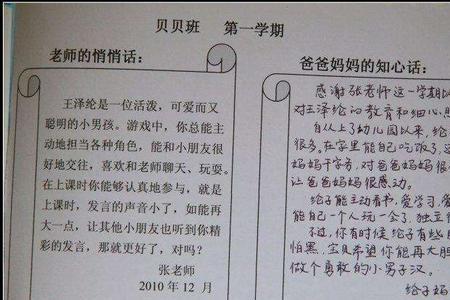 贝贝班 第一学期
老师的悄悄话：
王泽纶是一位活泼，可爱而又
聪明的小男孩。游戏中，你总能主
动地担当各种角色，能和小朋友很
好地交往，喜欢和老师聊天、玩耍。
在上课时你能够认真地参与，就是
上课时，发言的声音小了，如能再
大一点，让其他小朋友也听到你精
彩的发言，那就更好了，对吗？
张老师
2010 年 12 月
爸爸妈妈的知心话：
感谢张老师这一学期以
对王泽纶的教育和细心
自从上了幼儿园以来，纶
很多。在家里能自己吃饭了，
妈妈干家务，对爸爸妈妈很
让爸爸妈妈很感动。
纶子能主动看书，爱学习，爱
能自己一个人玩一会了，独立
不过，你有时候纶子有些
怕黑，宝贝希望你能再大胆
做个勇敢的小男子汉。
纶子妈